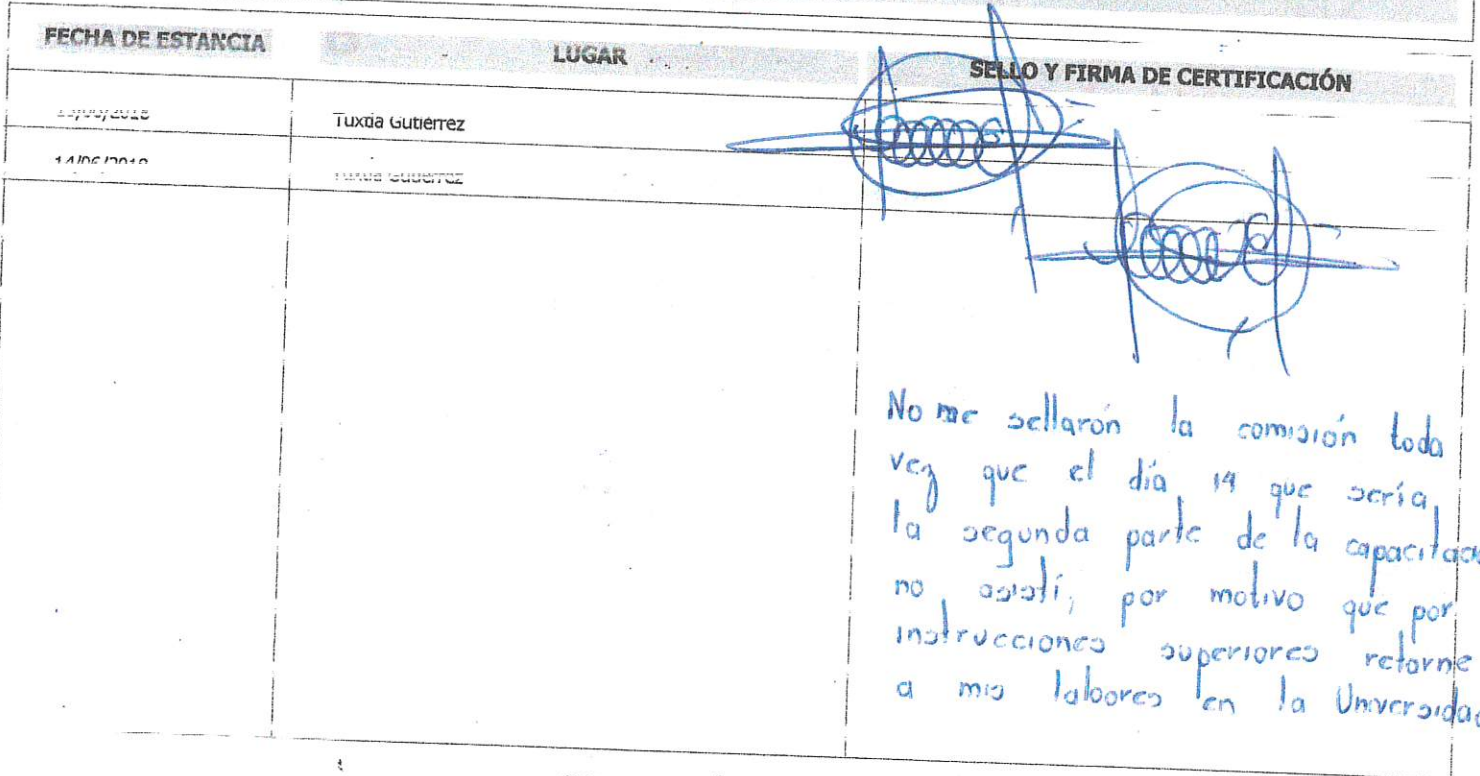 FECHA DE ESTANCIA LUGAR SELLO Y FIRMA DE CERTIFICACIÓN
Tuxtla Gutiérrez
14/06/2018 Tuxtla Gutiérrez
No me sellarón la comisión toda
vez que el día 14 que sería
la segunda parte de la capacitac
no asistí, por motivo que por
instrucciones superiores retorne
a mis labores en la Universidad